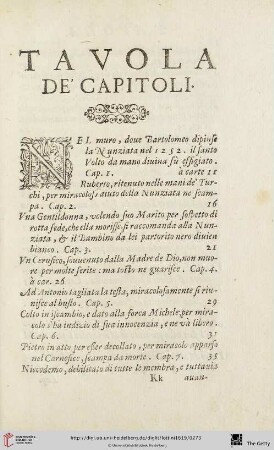 TAVOLA
DE' CAPITOLI.
NEL muro, doue Bartolomeo dipinse
la Nunziata nel 1252. il santo
Volto da mano diuina fù effigiato.
Cap. 1. à carte 11
Ruberto, ritenuto nelle mani de' Tur-
chi, per miracoloso aiuto della Nunziata ne scam-
pa. Cap. 2. 16
Vna Gentildonna, volendo suo Marito per sospetto di
rotta fede, che ella morisse, si raccomanda alla Nun-
ziata, & il Bambino da lei partorito nero diuiene
bianco. Cap. 3. 21
Vn Cerusico, souuenuto dalla Madre de Dio, non muo-
re per molte ferite: ma tosto ne guarisce. Cap. 4.
à car. 26
Ad Antonio tagliata la testa, miracolosamente si riu-
nisce al busto. Cap. 5. 29
Colto in iscambio, e dato alla forca Michele, per mira-
colo s'ha indizio di sua innocenza, e ne và libero.
Cap. 6. 32
Pietro in atto per esser decollato, per miracolo apparso
nel Carnefice, scampa da morte. Cap. 7. 35
Nicodemo, debilitato di tutte le membra, e tuttauia
Kk auan-
http://digi.ub.uni-heidelberg.de/diglit/lottini1619/0273
© Universitätsbibliothek Heidelberg
The Getty